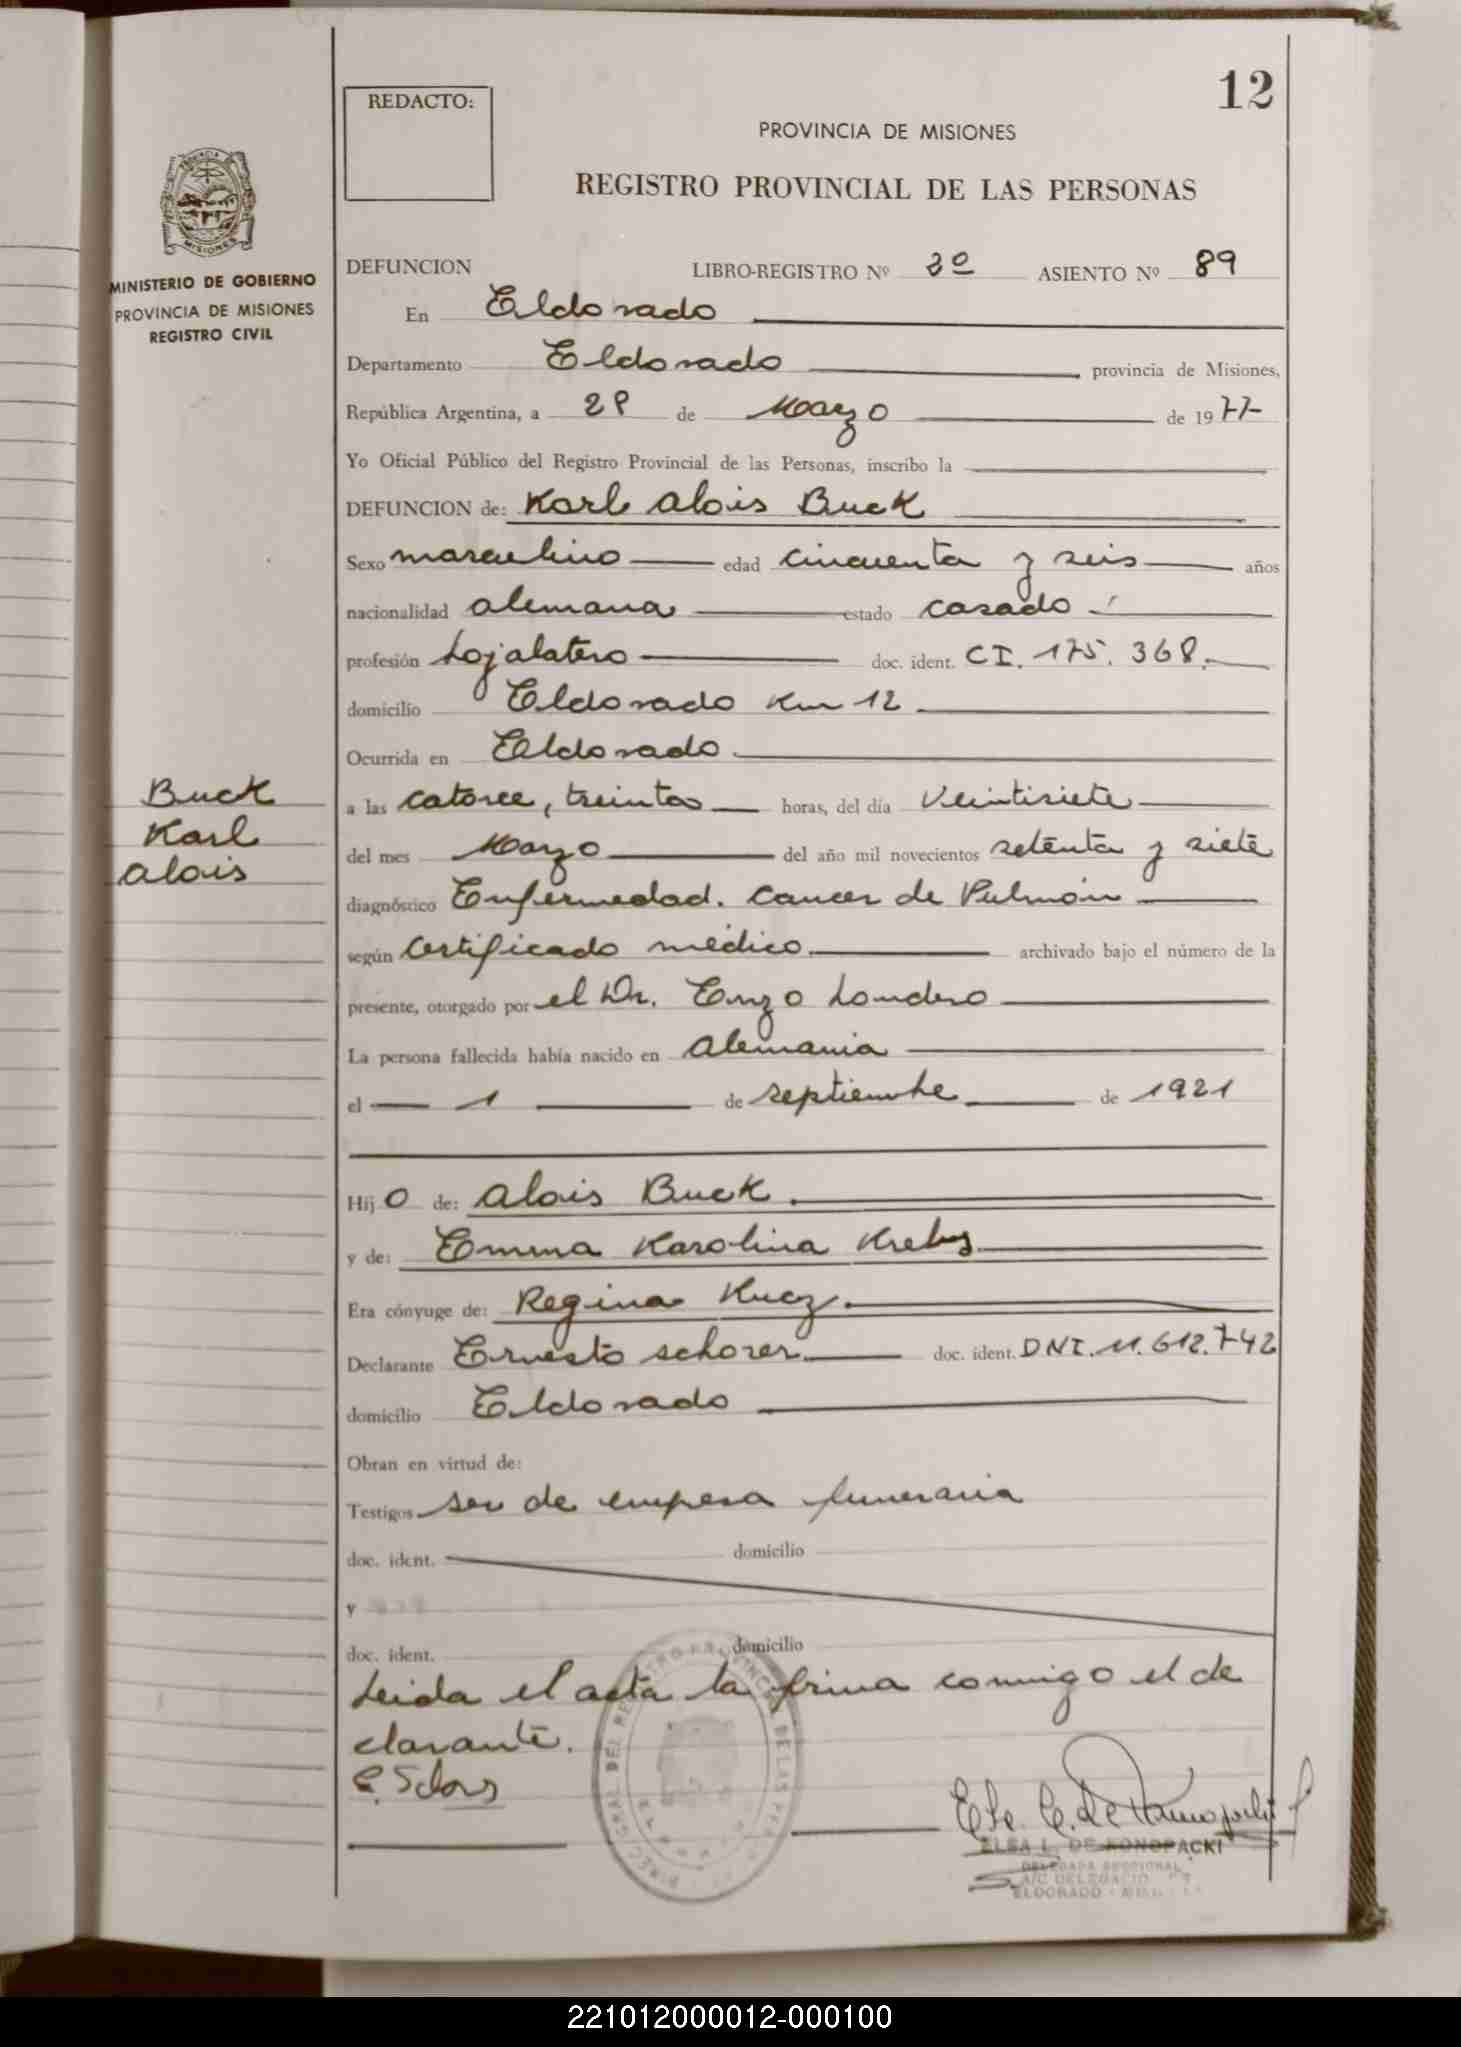 12
REDACTO:
PROVINCIA DE MISIONES
REGISTRO PROVINCIAL DE LAS PERSONAS
MINISTERIO DE GOBIERNO
PROVINCIA DE MISIONES
REGISTRO CIVIL
DEFUNCION LIBRO-REGISTRO Nº 3º ASIENTO Nº 89
En Eldorado
Departamento Eldorado provincia de Misiones,
República Argentina, a 28 de Marzo de 1977
Yo Oficial Público del Registro Provincial de las Personas, inscribo la
DEFUNCION de: Karl Alois Buck
Sexo masculino edad cincuenta y seis años
nacionalidad alemana estado casado
profesión Hojalatero doc. ident. CI. 175.368.
domicilio Eldorado Km 12
Ocurrida en Eldorado
Buck
Karl
Alois
a las catorce, treinta horas, del día veintisiete
del mes Marzo del año mil novecientos setenta y siete
diagnóstico Enfermedad. Cancer de Pulmón
según Certificado médico archivado bajo el número de la
presente, otorgado por el Dr. Enzo Londero
La persona fallecida había nacido en Alemania
el 1 de septiembre de 1921
Hijo de: Alois Buck.
y de: Emma Karolina Krebs
Era cónyuge de: Regina Kucz.
Declarante Ernesto Schorer doc. ident. DNI. 11.612.742
domicilio Eldorado
Obran en virtud de:
Testigos ser de empresa funeraria
doc. ident. domicilio
y
doc. ident. domicilio
Leida el acta la firma conmigo el de
clarante.
ELSA L. DE KONOPACKI
DELEGADA SECCIONAL
A/C DELEGACIO
ELDORADO
221012000012-000100